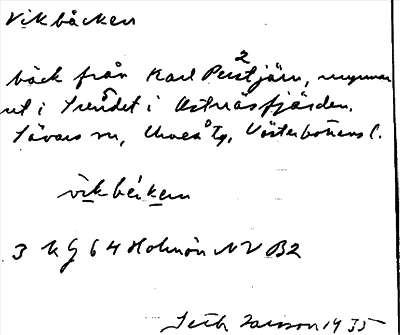 Vikbäcken
bäck från Karl Perstjärn, mynnar
ut i Treudet i Östnäsfjärden.
Sävars sn, Umeå tg, Västerbottens l.
vikbékem
3 KG 64 Holmön NV B2
Seth Larsson 1935